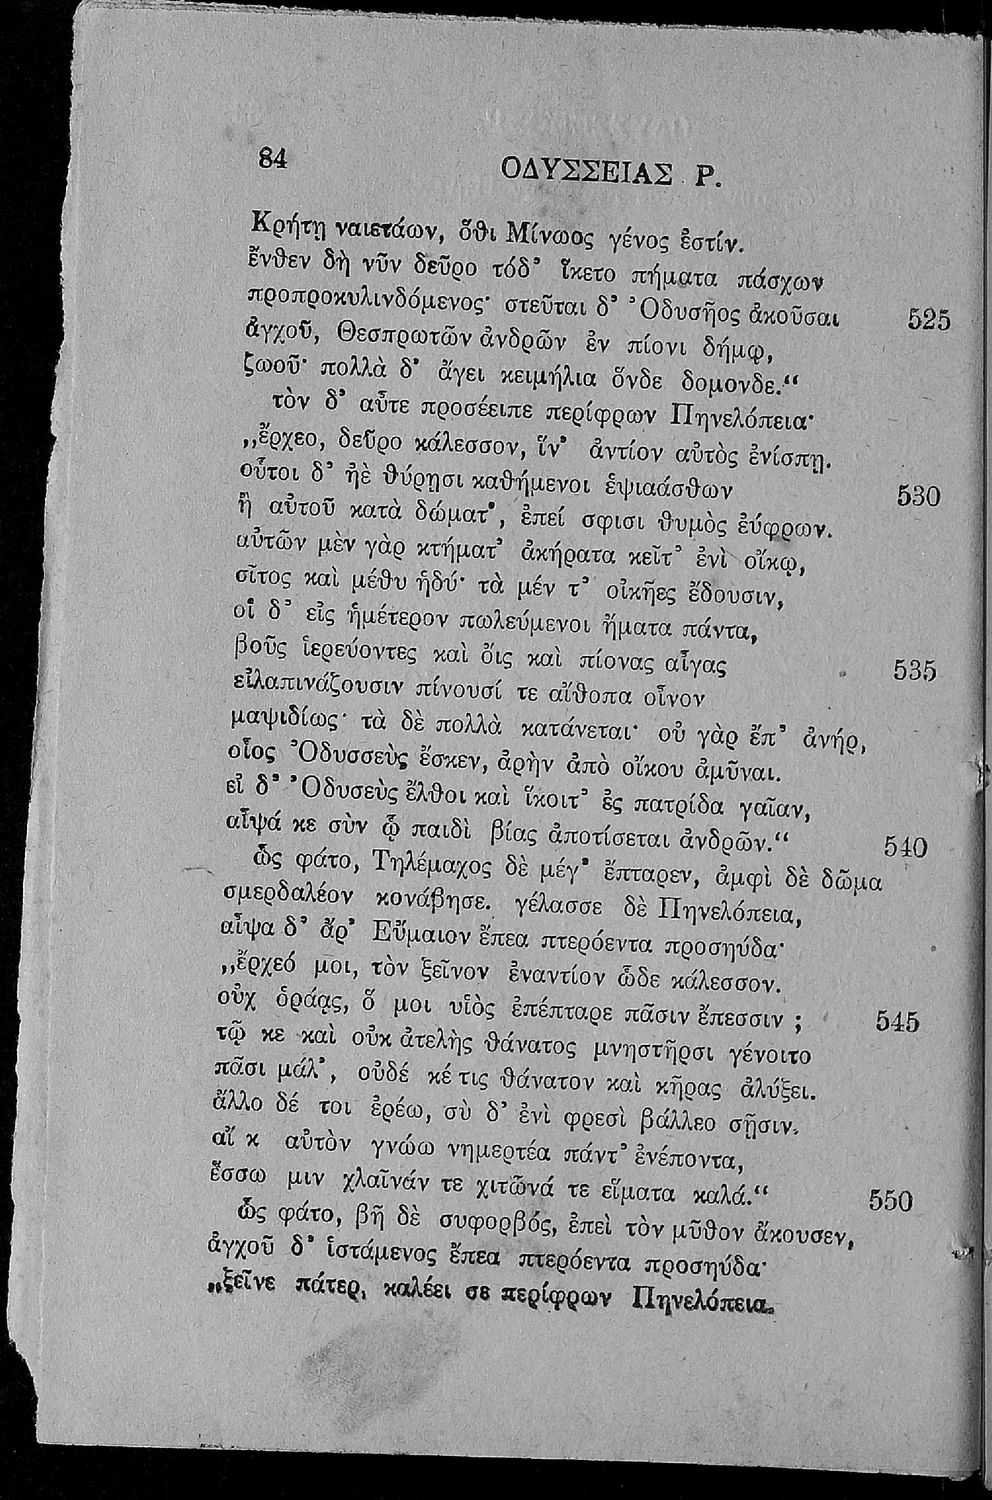 84 ΟΔΥΣΣΕΙΑΣ Ρ.
Κρήτῃ ναιετάων, ὅθι Μίνωος γένος ἐστίν.
ἔνθεν δὴ νῦν δεῦρο τόδ' ἵκετο πήματα πάσχων
προπροκυλινδόμενος· στεῦται δ' Ὀδυσῆος ἀκοῦσαι 525
ἀγχοῦ, Θεσπρωτῶν ἀνδρῶν ἐν πίονι δήμῳ,
ζωοῦ· πολλὰ δ' ἄγει κειμήλια ὅνδε δομονδε.“
τὸν δ' αὖτε προσέειπε περίφρων Πηνελόπεια·
„ἔρχεο, δεῦρο κάλεσσον, ἵν' ἀντίον αὐτὸς ἐνίσπῃ.
οὗτοι δ' ἠὲ θύρῃσι καθήμενοι ἑψιαάσθων 530
ἢ αὐτοῦ κατὰ δώματ', ἐπεί σφισι θυμὸς ἐύφρων.
αὐτῶν μὲν γὰρ κτήματ' ἀκήρατα κεῖτ' ἐνὶ οἴκῳ,
σῖτος καὶ μέθυ ἡδύ· τὰ μέν τ' οἰκῆες ἔδουσιν,
οἳ δ' εἰς ἡμέτερον πωλεύμενοι ἤματα πάντα,
βοῦς ἱερεύοντες καὶ ὄις καὶ πίονας αἶγας 535
εἰλαπινάζουσιν πίνουσί τε αἴθοπα οἶνον
μαψιδίως· τὰ δὲ πολλὰ κατάνεται· οὐ γὰρ ἔπ' ἀνήρ,
οἷος Ὀδυσσεὺς ἔσκεν, ἀρὴν ἀπὸ οἴκου ἀμῦναι.
εἰ δ' Ὀδυσεὺς ἔλθοι καὶ ἵκοιτ' ἐς πατρίδα γαῖαν,
αἶψά κε σὺν ᾧ παιδὶ βίας ἀποτίσεται ἀνδρῶν.“ 540
ὣς φάτο, Τηλέμαχος δὲ μέγ' ἔπταρεν, ἀμφὶ δὲ δῶμα
σμερδαλέον κονάβησε. γέλασσε δὲ Πηνελόπεια,
αἶψα δ' ἄρ' Εὔμαιον ἔπεα πτερόεντα προσηύδα·
„ἔρχεό μοι, τὸν ξεῖνον ἐναντίον ὧδε κάλεσσον.
οὐχ ὁράᾳς, ὅ μοι υἱὸς ἐπέπταρε πᾶσιν ἔπεσσιν ; 545
τῷ κε καὶ οὐκ ἀτελὴς θάνατος μνηστῆρσι γένοιτο
πᾶσι μάλ', οὐδέ κέ τις θάνατον καὶ κῆρας ἀλύξει.
ἄλλο δέ τοι ἐρέω, σὺ δ' ἐνὶ φρεσὶ βάλλεο σῇσιν.
αἴ κ αὐτὸν γνώω νημερτέα πάντ' ἐνέποντα,
ἕσσω μιν χλαῖνάν τε χιτῶνά τε εἵματα καλά.“ 550
ὣς φάτο, βῆ δὲ συφορβός, ἐπεὶ τὸν μῦθον ἄκουσεν,
ἀγχοῦ δ' ἱστάμενος ἔπεα πτερόεντα προσηύδα·
„ξεῖνε πάτερ, καλέει σε περίφρων Πηνελόπεια.